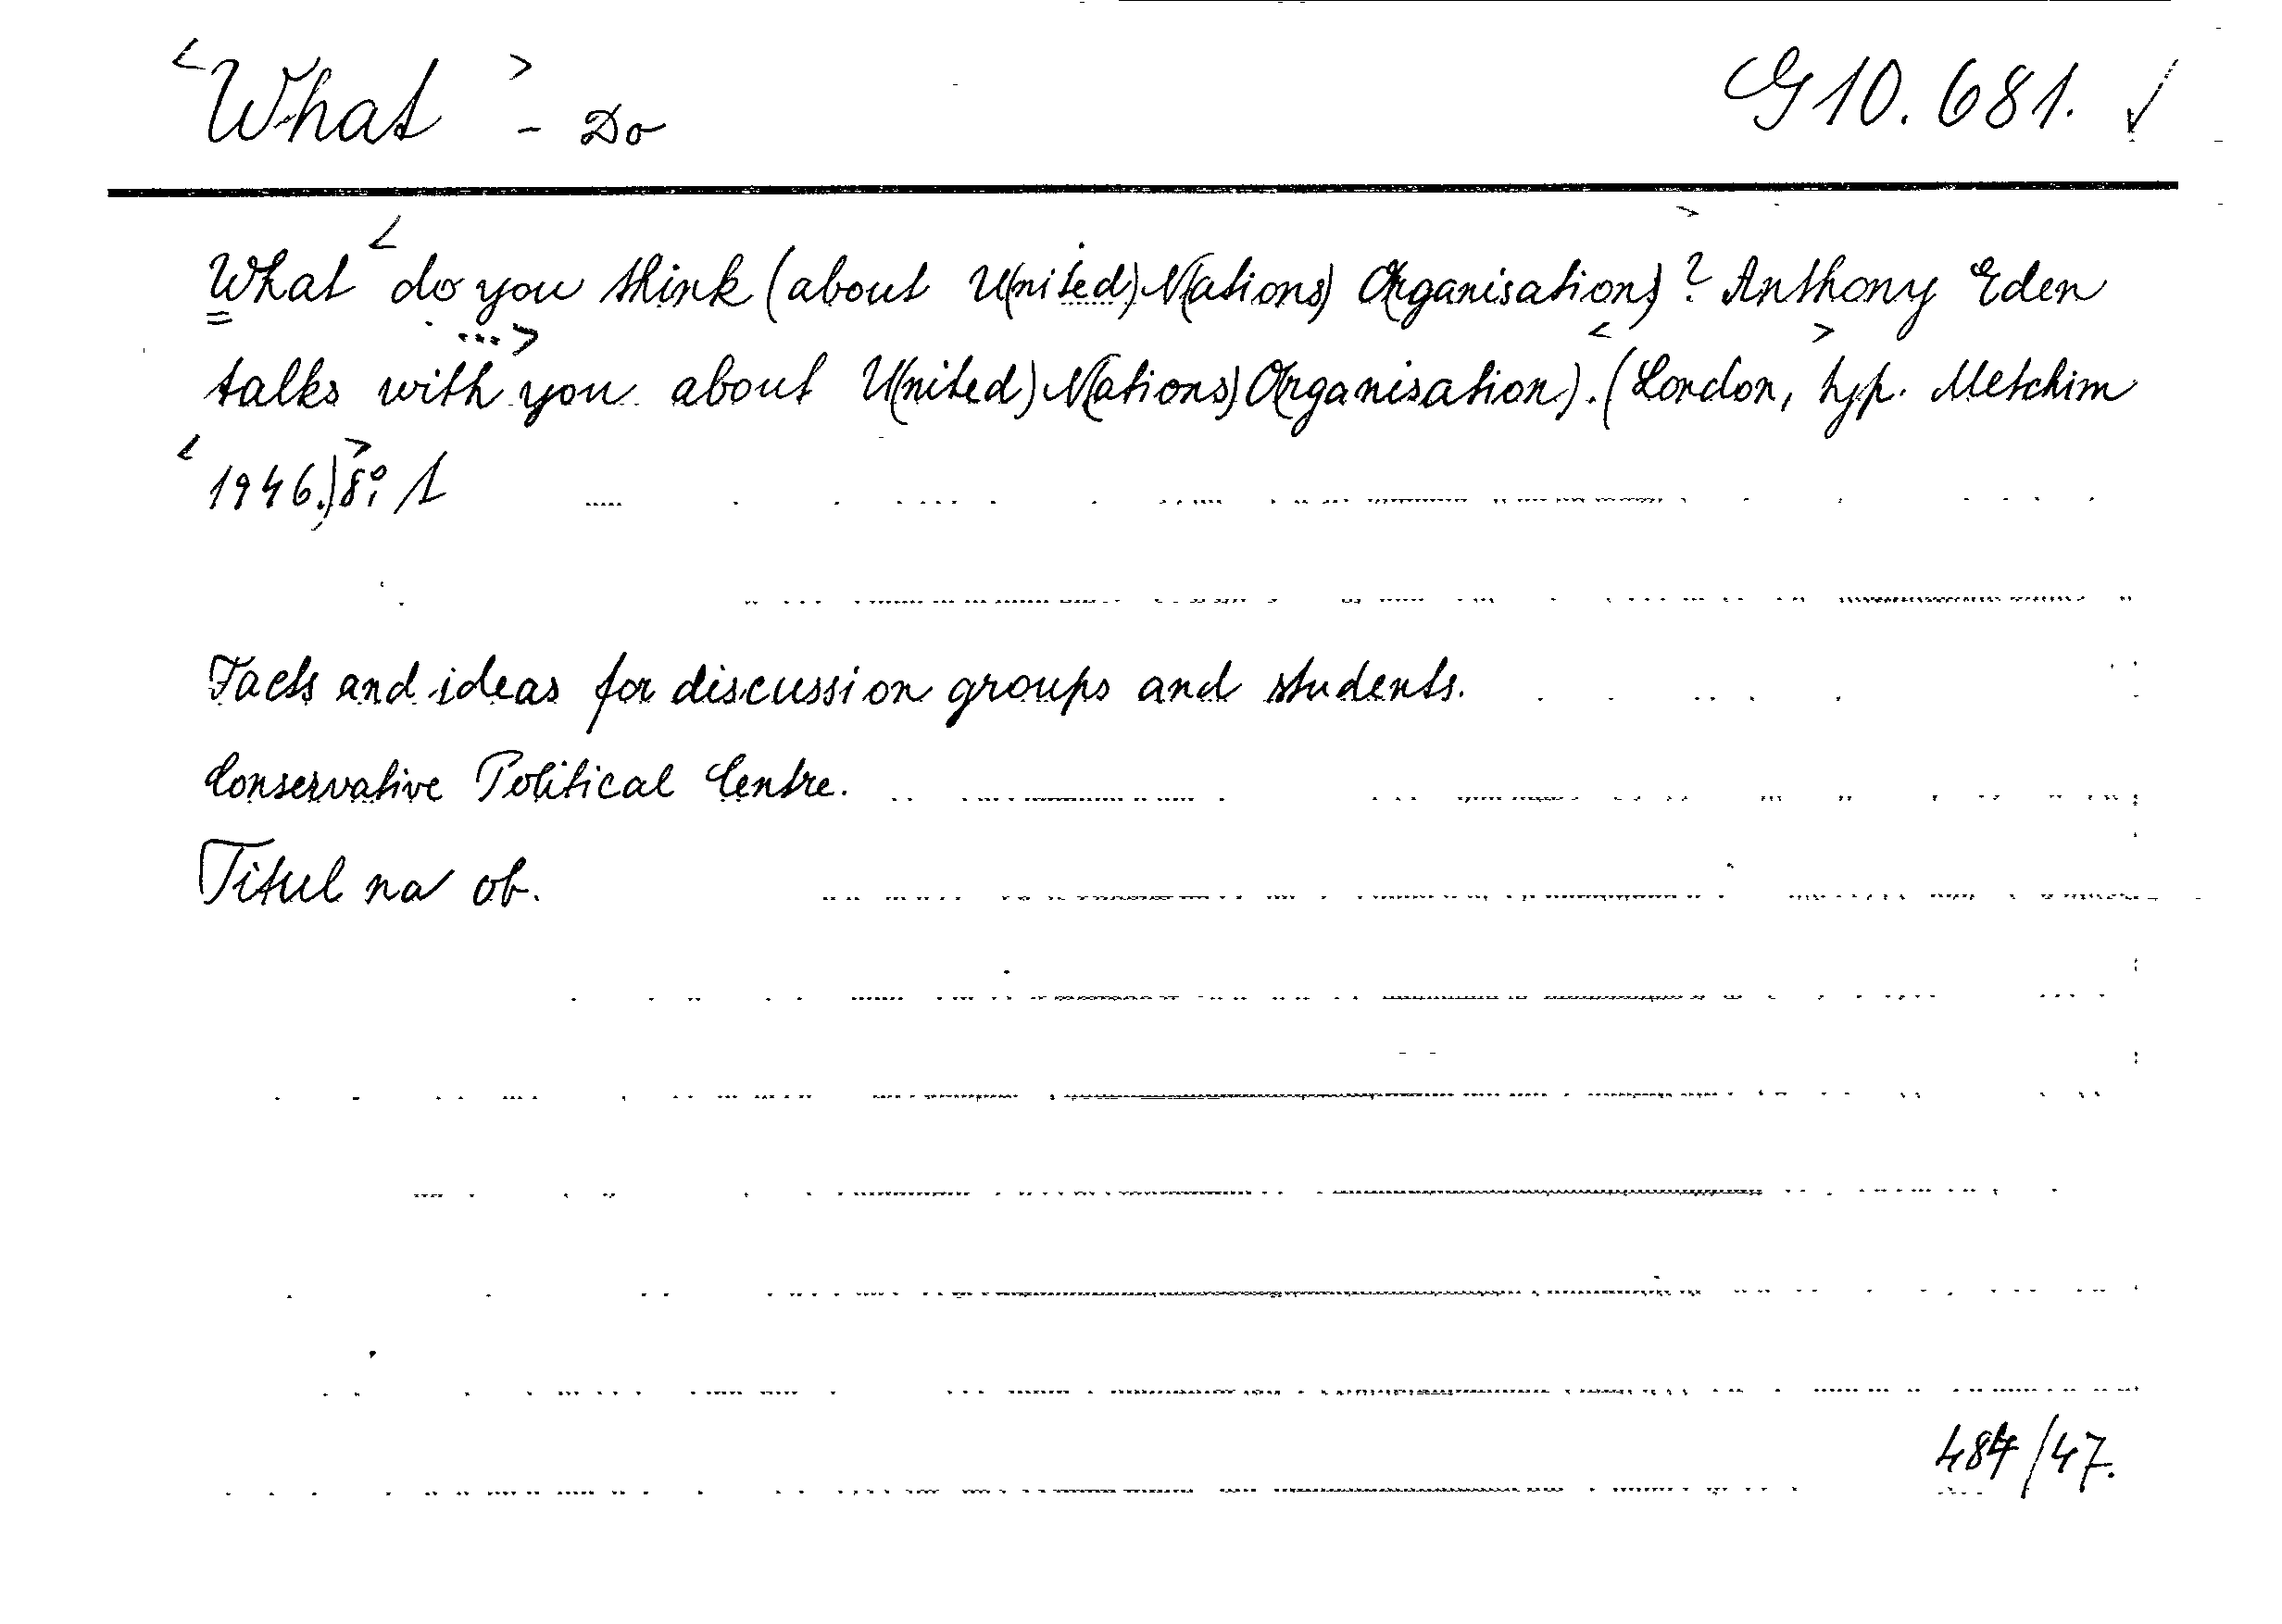 <What> - Do G10.681. ✓
What <do you think (about U(nited) N(ations) O(rganisation)>? Anthony Eden
talks with ...> you about U(nited) N(ations) O(rganisation). <(London,> typ. Metchim
<1946.)> 8°; 1
Facts and ideas for discussion groups and students.
Conservative Political Centre.
Titul na ob.
484/47.